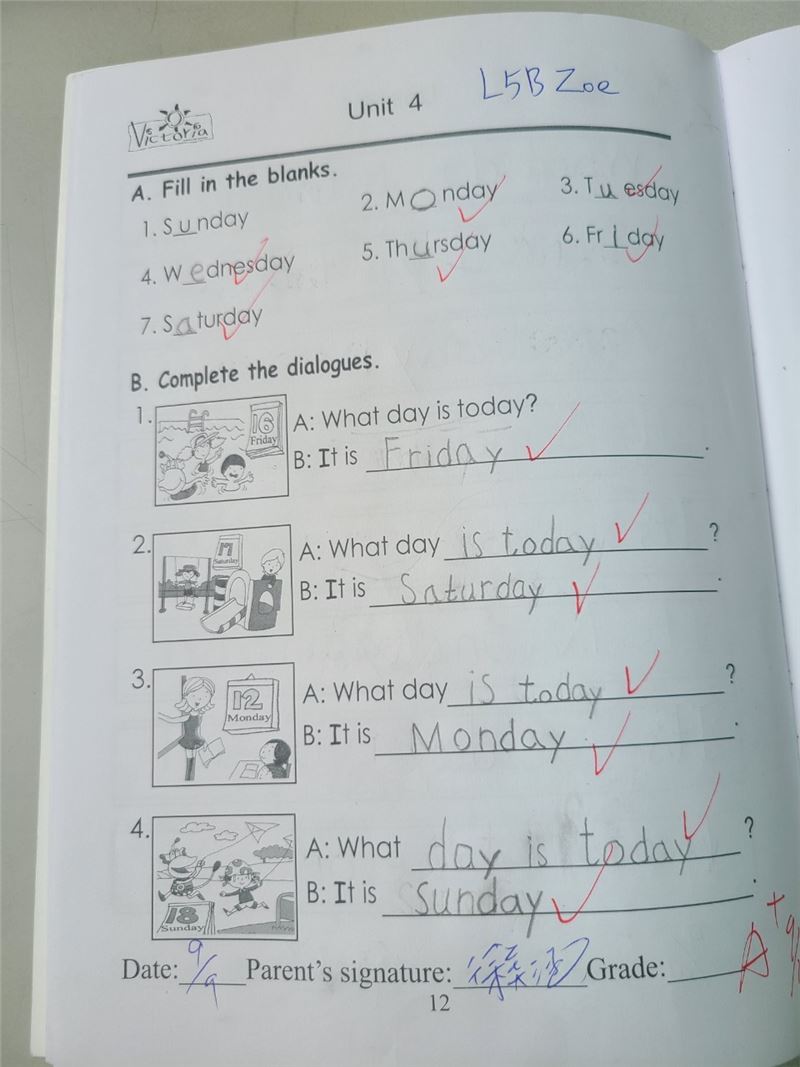 L5B Zoe
Victoria
Unit 4
A. Fill in the blanks.
1. Sunday 2. Monday 3. Tuesday
4. Wednesday 5. Thursday 6. Friday
7. Saturday
B. Complete the dialogues.
1. 16 Friday
A: What day is today?
B: It is Friday.
2. 17 Saturday
A: What day is today?
B: It is Saturday.
3. 12 Monday
A: What day is today?
B: It is Monday.
4. 18 Sunday
A: What day is today?
B: It is Sunday.
Date: 9/9 Parent's signature: Grade: A+
12